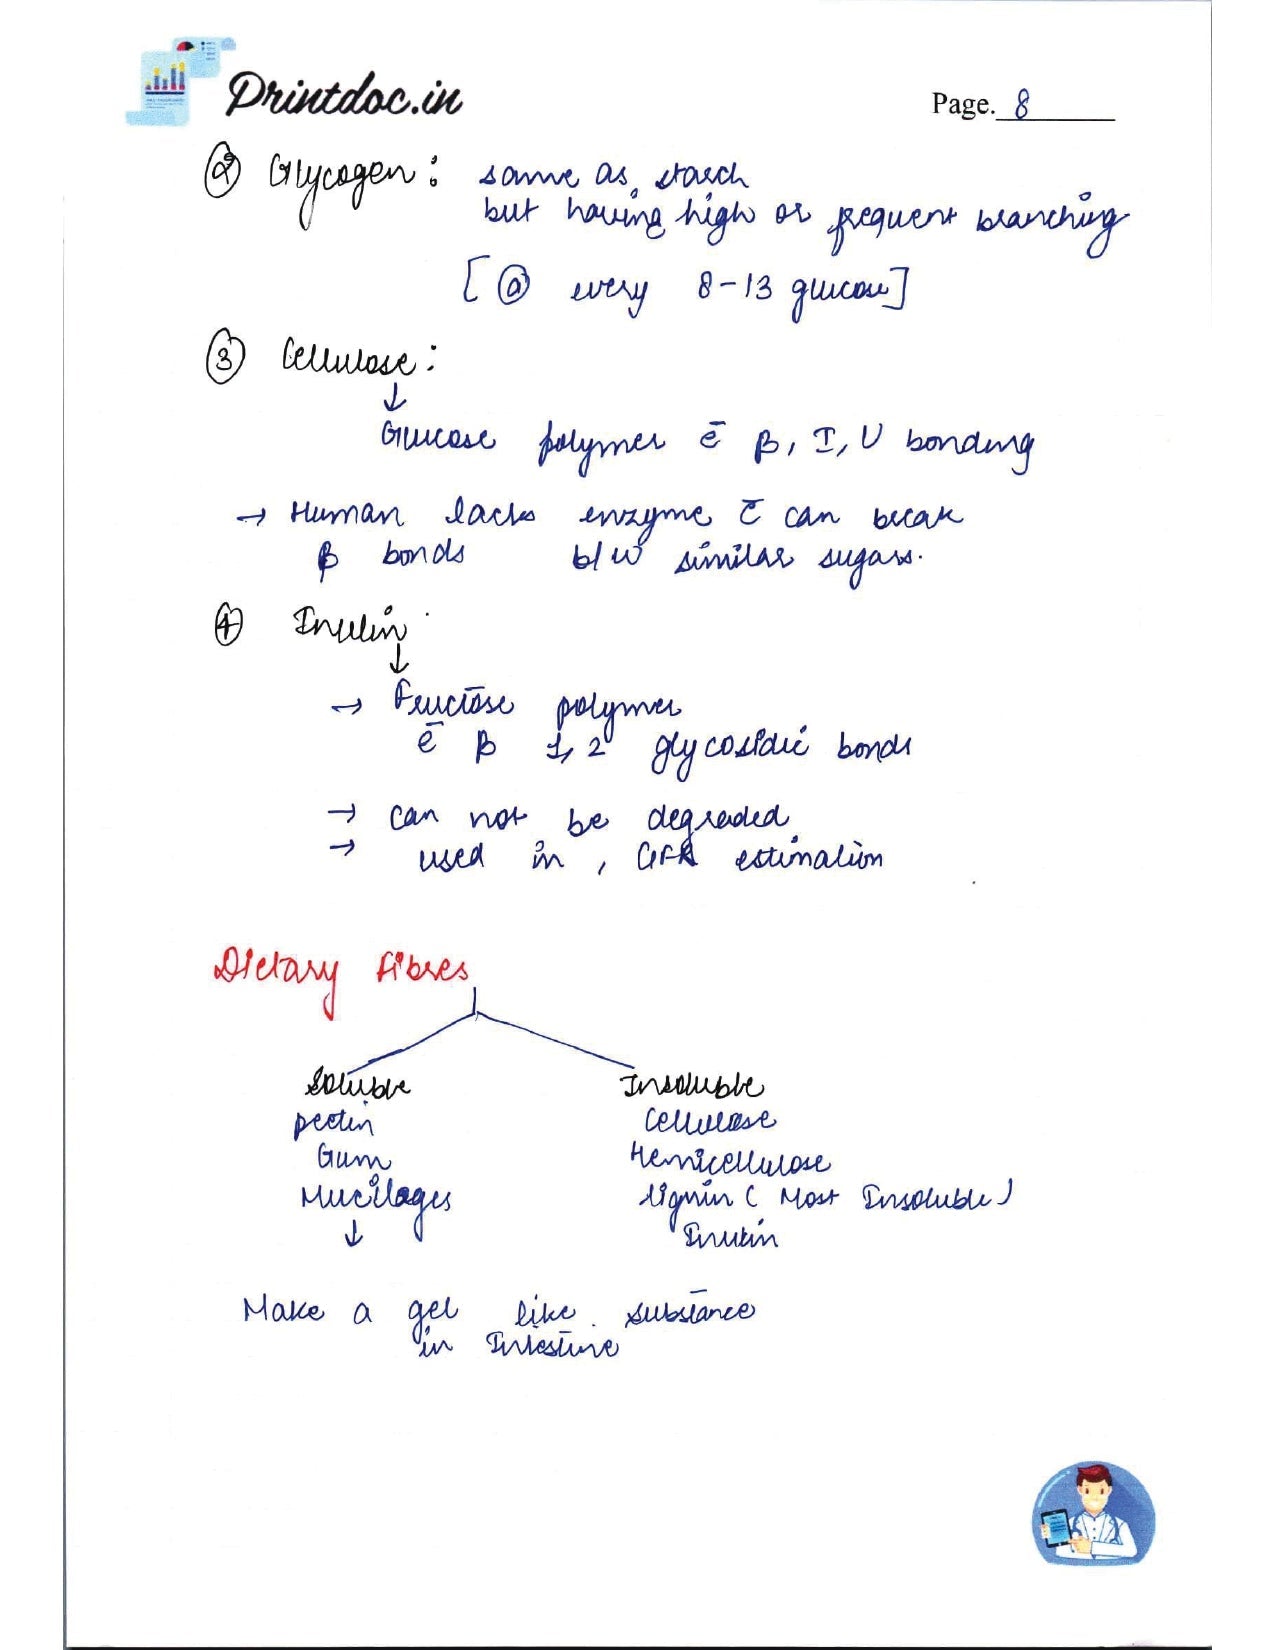 Printdoc.in
Page. 8
② Glycogen : same as starch
but having high or frequent branching
[@ every 8-13 glucose]
③ Cellulose :
↓
Glucose polymer c̄ β, I, U bonding
→ Human lacks enzyme c̄ can break
β bonds b/w similar sugars.
④ Inulin
↓
→ Fructose polymer
c̄ β 1,2 glycosidic bonds
→ can not be degraded
→ used in , GFR estimation
Dietary fibres
Soluble Insoluble
pectin Cellulose
Gum Hemicellulose
Mucilages lignin ( Most Insoluble )
↓ Inulin
Make a gel like substance
in Intestine